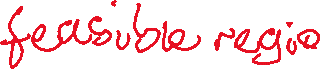 feasible regio